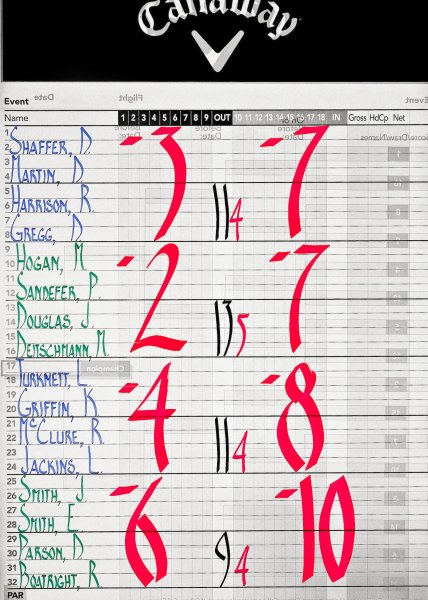 Callaway
Event Date Flight Event
Name 1 2 3 4 5 6 7 8 9 OUT 10 11 12 13 14 15 16 17 18 IN Gross HdCp Net
1
2 SHAFFER, D. -3 -7
3
4 MARTIN, D.
5
6 HARRISON, R. 11 4
7
8 GREGG, D.
9
10 HOGAN, M. -2 -7
11
12 SANDEFER, P.
13
14 DOUGLAS, J. 13 5
15
16 DEITSCHMANN, M.
17 Champion
18 TURKNETT, L. -4 -8
19
20 GRIFFIN, K.
21
22 McCLURE, R. 11 4
23
24 JACKINS, L.
25
26 SMITH, J. -6 -10
27
28 SMITH, E.
29
30 PARSON, D. 9 4
31
32 BOATRIGHT, R.
PAR